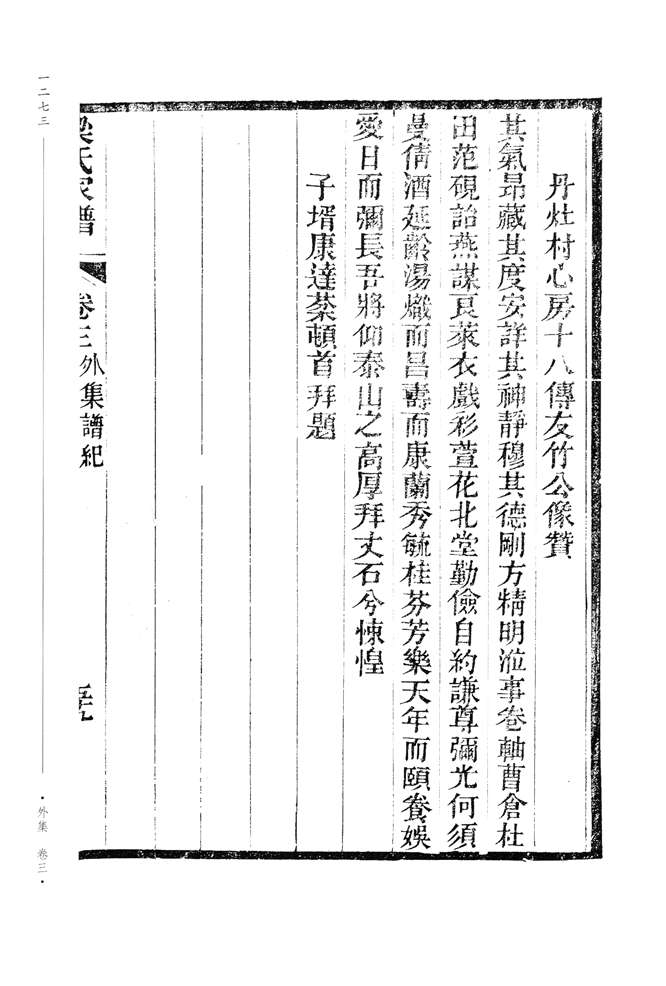 丹灶村心房十八傳友竹公像贊
其氣昂藏其度安詳其神靜穆其德剛方精明涖事卷軸曹倉杜
田范硯詒燕謀良萊衣戲彩萱花北堂勤儉自約謙尊彌光何須
曼倩酒延齡湯熾而昌壽而康蘭秀毓桂芬芳樂天年而頤養娛
愛日而彌長吾將仰泰山之高厚拜丈石兮悚惶
子壻康達棻頓首拜題
梁氏家譜 卷三外集譜紀 五九
一二七三
·外集 卷三·